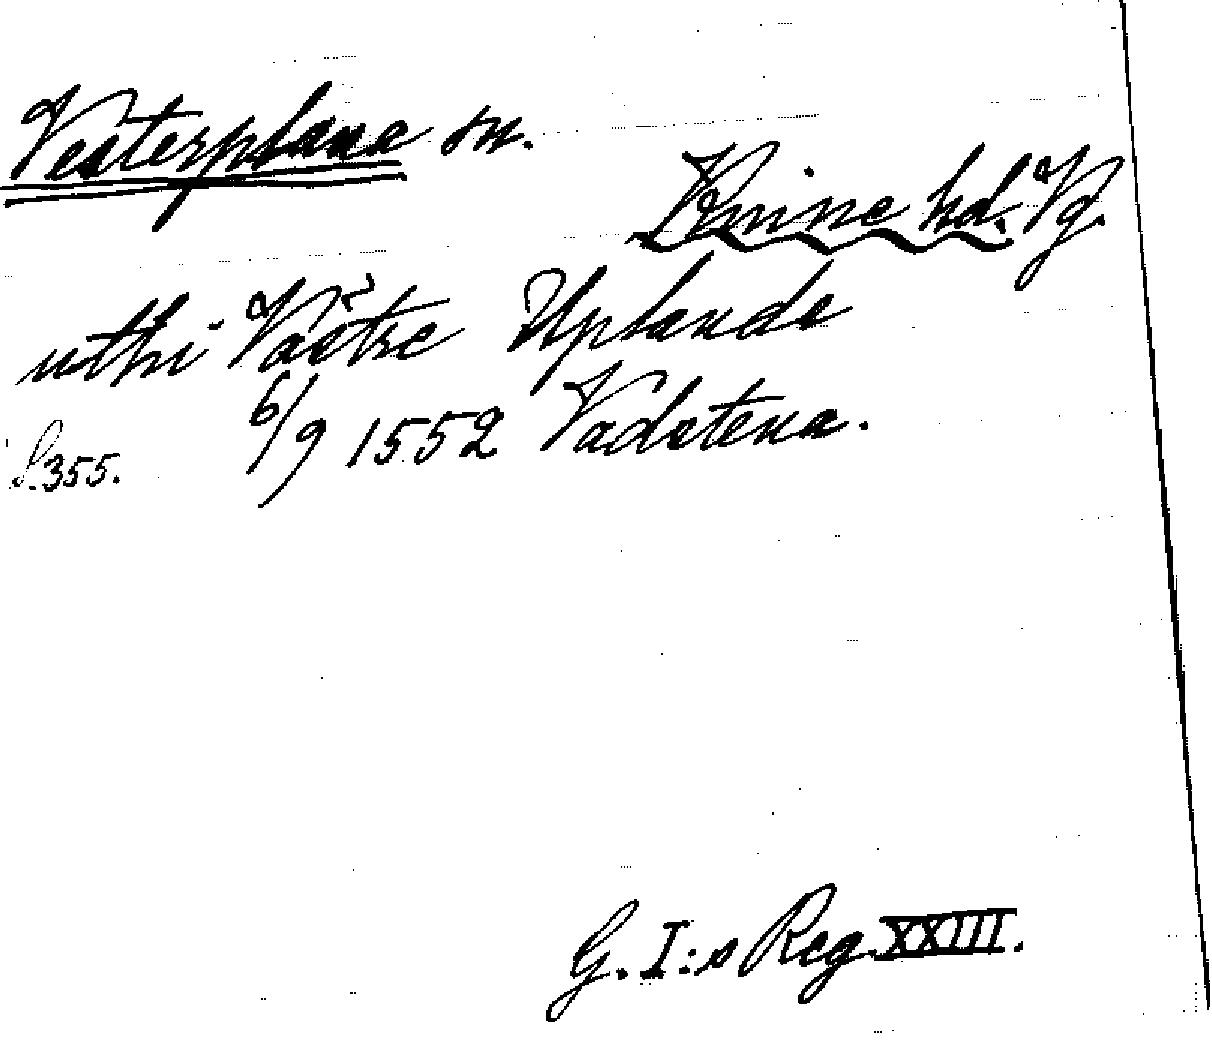 Vesterplana sn.
Kinne hd. Vg.
uthi Västre Uplanda
6/9 1552 Vadstena.
S. 355.
G. I:s Reg. XXIII.